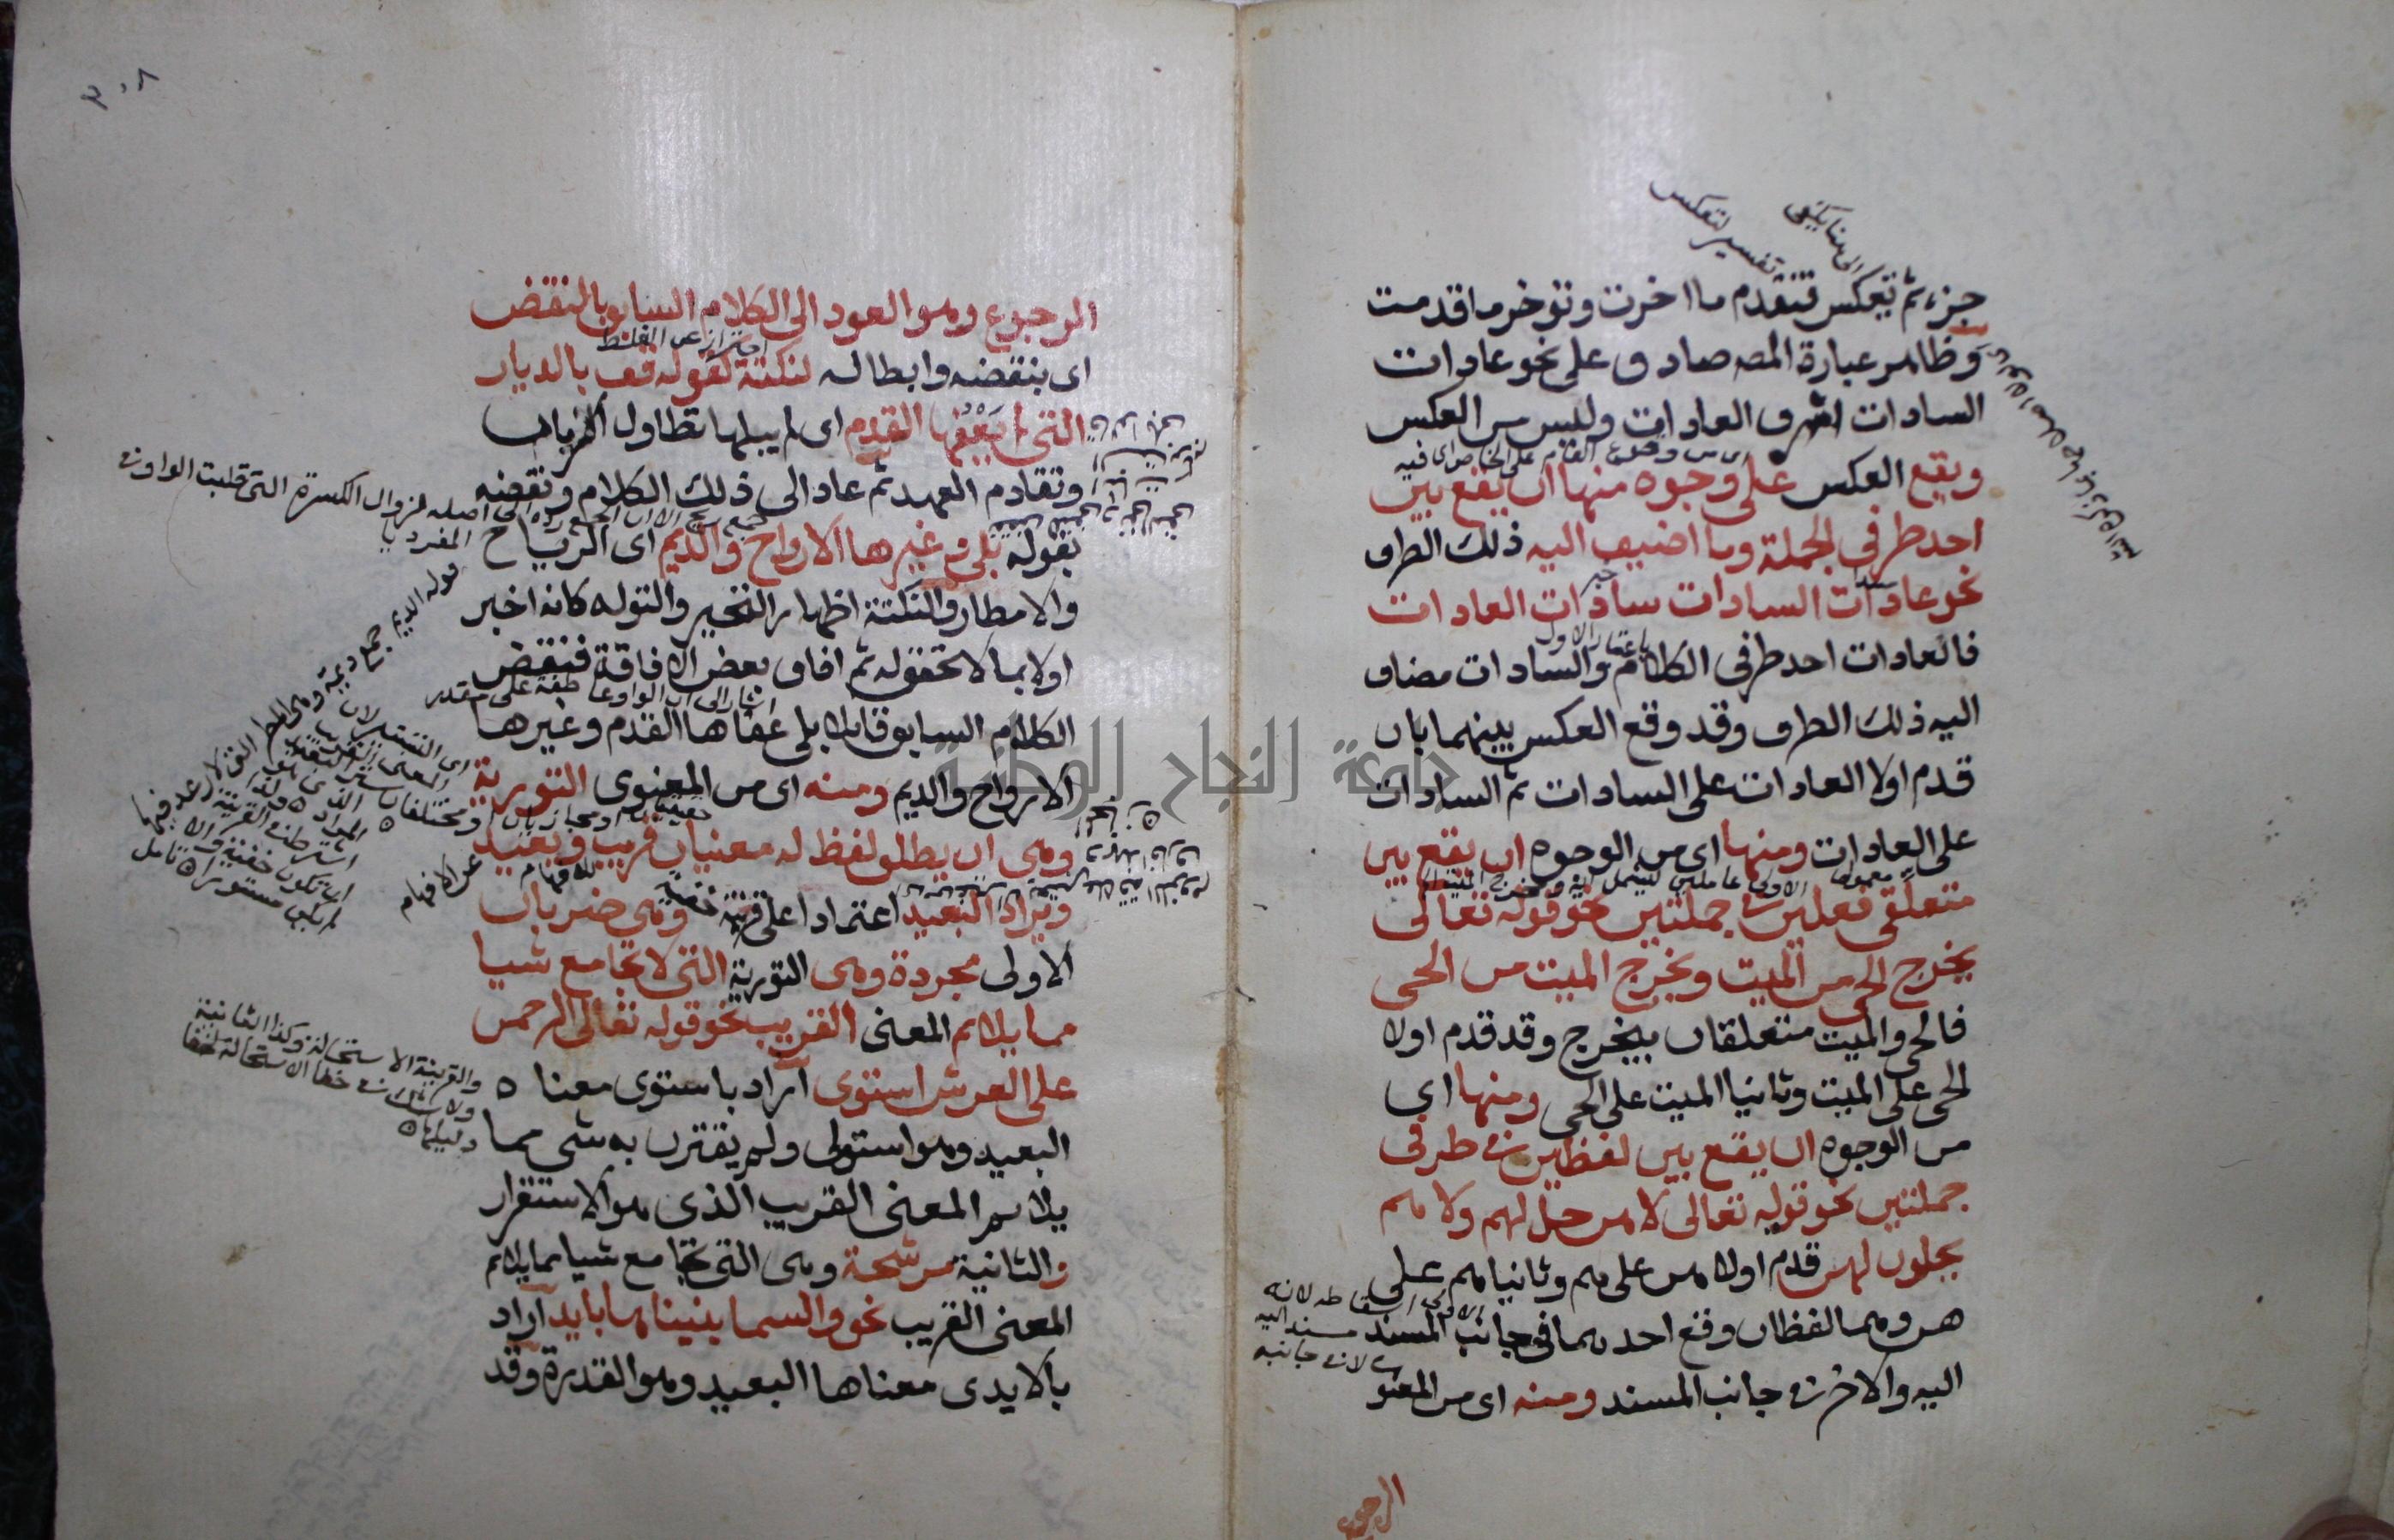 جزء ثم تعكس فتقدم ما اخرت وتوخر ما قدمت
وظاهر عبارة المص صادق على نحو عادات
السادات اشرف العادات وليس من العكس
ويقع العكس على وجوه منها ان يقع بين
احد طرفى الجملة وما اضيف اليه ذلك الطرف
نحو عادات السادات سادات العادات
فالعادات احد طرفى الكلام والسادات مضاف
اليه ذلك الطرف وقد وقع العكس بينهما بان
قدم اولا العادات على السادات ثم السادات
على العادات ومنها اى من الوجوه ان يقع بين
متعلقى فعلين فى جملتين نحو قوله تعالى
يخرج الحى من الميت ويخرج الميت من الحى
فالحى والميت متعلقان بيخرج وقد قدم اولا
الحى على الميت وثانيا الميت على الحى ومنها اى
من الوجوه ان يقع بين لفظين فى طرفى
جملتين نحو قوله تعالى لا هن حل لهم ولا هم
يحلون لهن قدم اولا هن على هم وثانيا هم على
هن وهما لفظان وقع احدهما فى جانب المسند
اليه والاخر فى جانب المسند ومنه اى من المعنو
تفسير لتعكس
باعتبار الاول
خبر
الرجوع
٣٠٨
الرجوع وهو العود الى الكلام السابق بالنقض
اى بنقضه وابطاله لنكتة كقوله قف بالديار
التى لم يعفها القدم اى لم يبلها تطاول الزمان
وتقادم العهد ثم عاد الى ذلك الكلام ونقضه
بقوله بلى وغيرها الارواح والديم اى الرياح
والامطار والنكتة اظهار التحير والتوله كانه اخبر
اولا بما لا تحقق له ثم افاق بعض الافاقة فنقض
الكلام السابق قائلا بلى عفاها القدم وغيرها
الارواح والديم ومنه اى من المعنوى التورية
وهى ان يطلق لفظ له معنيان قريب وبعيد
ويراد البعيد اعتمادا على قرينة خفية وهى ضربان
الاولى مجردة وهى التورية التى لا تجامع شيا
مما يلائم المعنى القريب نحو قوله تعالى الرحمن
على العرش استوى اراد باستوى معناه
البعيد وهو استولى ولم يقترن به شى مما
يلائم المعنى القريب الذى هو الاستقرار
والثانية مرشحة وهى التى تجامع شيا مما يلائم
المعنى القريب نحو والسما بنيناها بايد اراد
بالايدى معناها البعيد وهو القدرة وقد
احتراز عن الغلط
اشار الى ان الواو عاطفة على مقدر
والقرينة الاستحالة وكذا الثانية
ولا شك فى خفا الاستحالة لخفا
دليلها